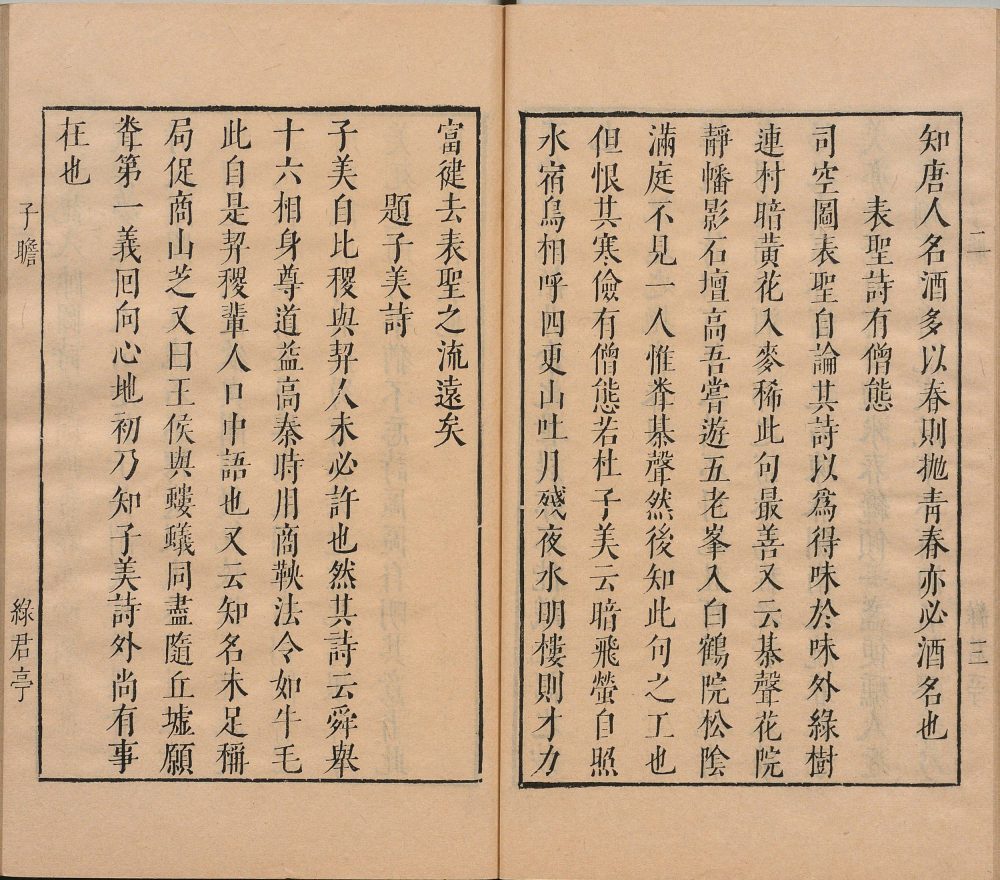 知唐人名酒多以春則抛青春亦必酒名也
表聖詩有僧態
司空圖表聖自論其詩以爲得味於味外綠樹
連村暗黃花入麥稀此句最善又云棊聲花院
靜幡影石壇高吾嘗遊五老峯入白鶴院松陰
滿庭不見一人惟聞棊聲然後知此句之工也
但恨其寒儉有僧態若杜子美云暗飛螢自照
水宿鳥相呼四更山吐月殘夜水明樓則才力
富健去表聖之流遠矣
題子美詩
子美自比稷與契人未必許也然其詩云舜舉
十六相身尊道益高秦時用商鞅法令如牛毛
此自是契稷輩人口中語也又云知名未足稱
局促商山芝又曰王侯與螻蟻同盡隨丘墟願
聞第一義回向心地初乃知子美詩外尚有事
在也
子瞻
綠君亭